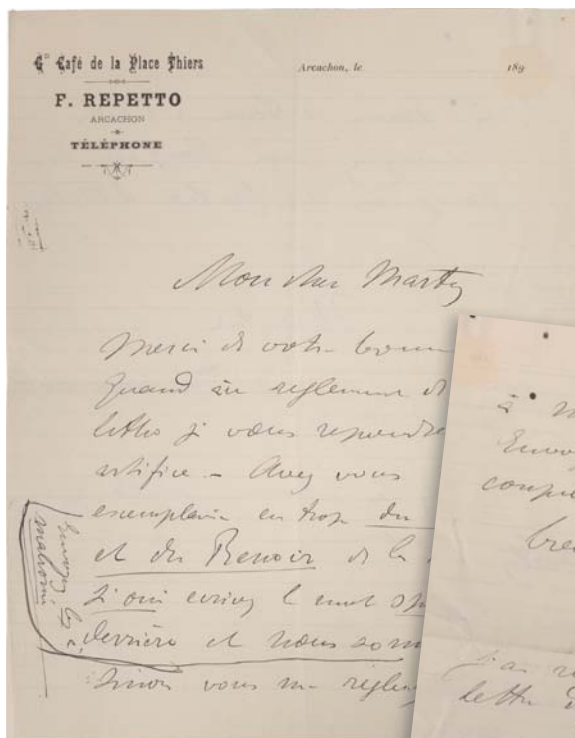 Gd Café de la Place Thiers
F. REPETTO
ARCACHON
TÉLÉPHONE
Arcachon, le 189
Mon cher Marty
Merci de votre bonne
Quand au reglement de
litho je vous repondrai
artifice – Avez vous
exemplaire en trop du
et du Renoir de la
Si oui ecrivez le mot
derrière et nous som
Sinon vous me règlez
Envoyez les
malromé
à
Envoy
coupu
j'ai
lettre